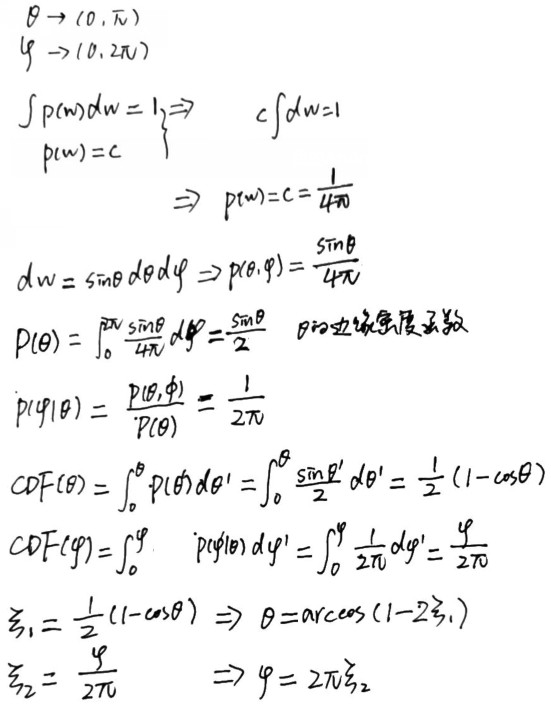 θ → (0, π)
φ → (0, 2π)
∫ p(w) dw = 1 } ⇒ c ∫ dw = 1
p(w) = c
⇒ p(w) = c = 1/4π
dw = sinθ dθ dφ ⇒ p(θ, φ) = sinθ/4π
P(θ) = ∫₀^{2π} sinθ/4π dφ = sinθ/2 θ的边缘密度函数
p(φ|θ) = p(θ, ϕ)/P(θ) = 1/2π
CDF(θ) = ∫₀^θ p(θ') dθ' = ∫₀^θ sinθ'/2 dθ' = 1/2 (1 - cosθ)
CDF(φ) = ∫₀^φ p(φ'|θ) dφ' = ∫₀^φ 1/2π dφ' = φ/2π
ξ₁ = 1/2 (1 - cosθ) ⇒ θ = arccos(1 - 2ξ₁)
ξ₂ = φ/2π ⇒ φ = 2πξ₂